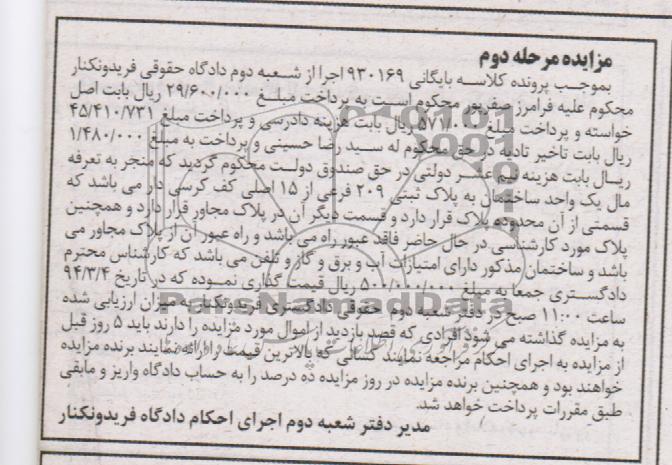 مزایده مرحله دوم
بموجب پرونده کلاسه بایگانی ۹۳۰۱۶۹ اجرا از شعبه دوم دادگاه حقوقی فریدونکنار
محکوم علیه فرامرز صفرپور محکوم است به پرداخت مبلغ ۲۹/۶۰۰/۰۰۰ ریال بابت اصل
خواسته و پرداخت مبلغ ۵۷۱/۰۰۰ ریال بابت هزینه دادرسی و پرداخت مبلغ ۴۵/۴۱۰/۷۳۱
ریال بابت تاخیر تادیه در حق محکوم له سید رضا حسینی و پرداخت به مبلغ ۱/۴۸۰/۰۰۰
ریال بابت هزینه نیم عشر دولتی در حق صندوق دولت محکوم گردید که منجر به تعرفه
مال یک واحد ساختمان به پلاک ثبتی ۲۰۹ فرعی از ۱۵ اصلی کف کرسی دار می باشد که
قسمتی از آن محدوده پلاک قرار دارد و قسمت دیگر آن در پلاک مجاور قرار دارد و همچنین
پلاک مورد کارشناسی در حال حاضر فاقد عبور راه می باشد و راه عبور آن از پلاک مجاور می
باشد و ساختمان مذکور دارای امتیازات آب و برق و گاز و تلفن می باشد که کارشناس محترم
دادگستری جمعا به مبلغ ۵۰۰/۰۰۰/۰۰۰ ریال قیمت گذاری نموده که در تاریخ ۹۴/۳/۴
ساعت ۱۱:۰۰ صبح در دفتر شعبه دوم حقوقی دادگستری فریدونکنار به میزان ارزیابی شده
به مزایده گذاشته می شود افرادی که قصد بازدید از اموال مورد مزایده را دارند باید ۵ روز قبل
از مزایده به اجرای احکام مراجعه نمایند کسانی که بالاترین قیمت را ارائه نمایند برنده مزایده
خواهند بود و همچنین برنده مزایده در روز مزایده ده درصد را به حساب دادگاه واریز و مابقی
طبق مقررات پرداخت خواهد شد.
مدیر دفتر شعبه دوم اجرای احکام دادگاه فریدونکنار
ParsNamadData